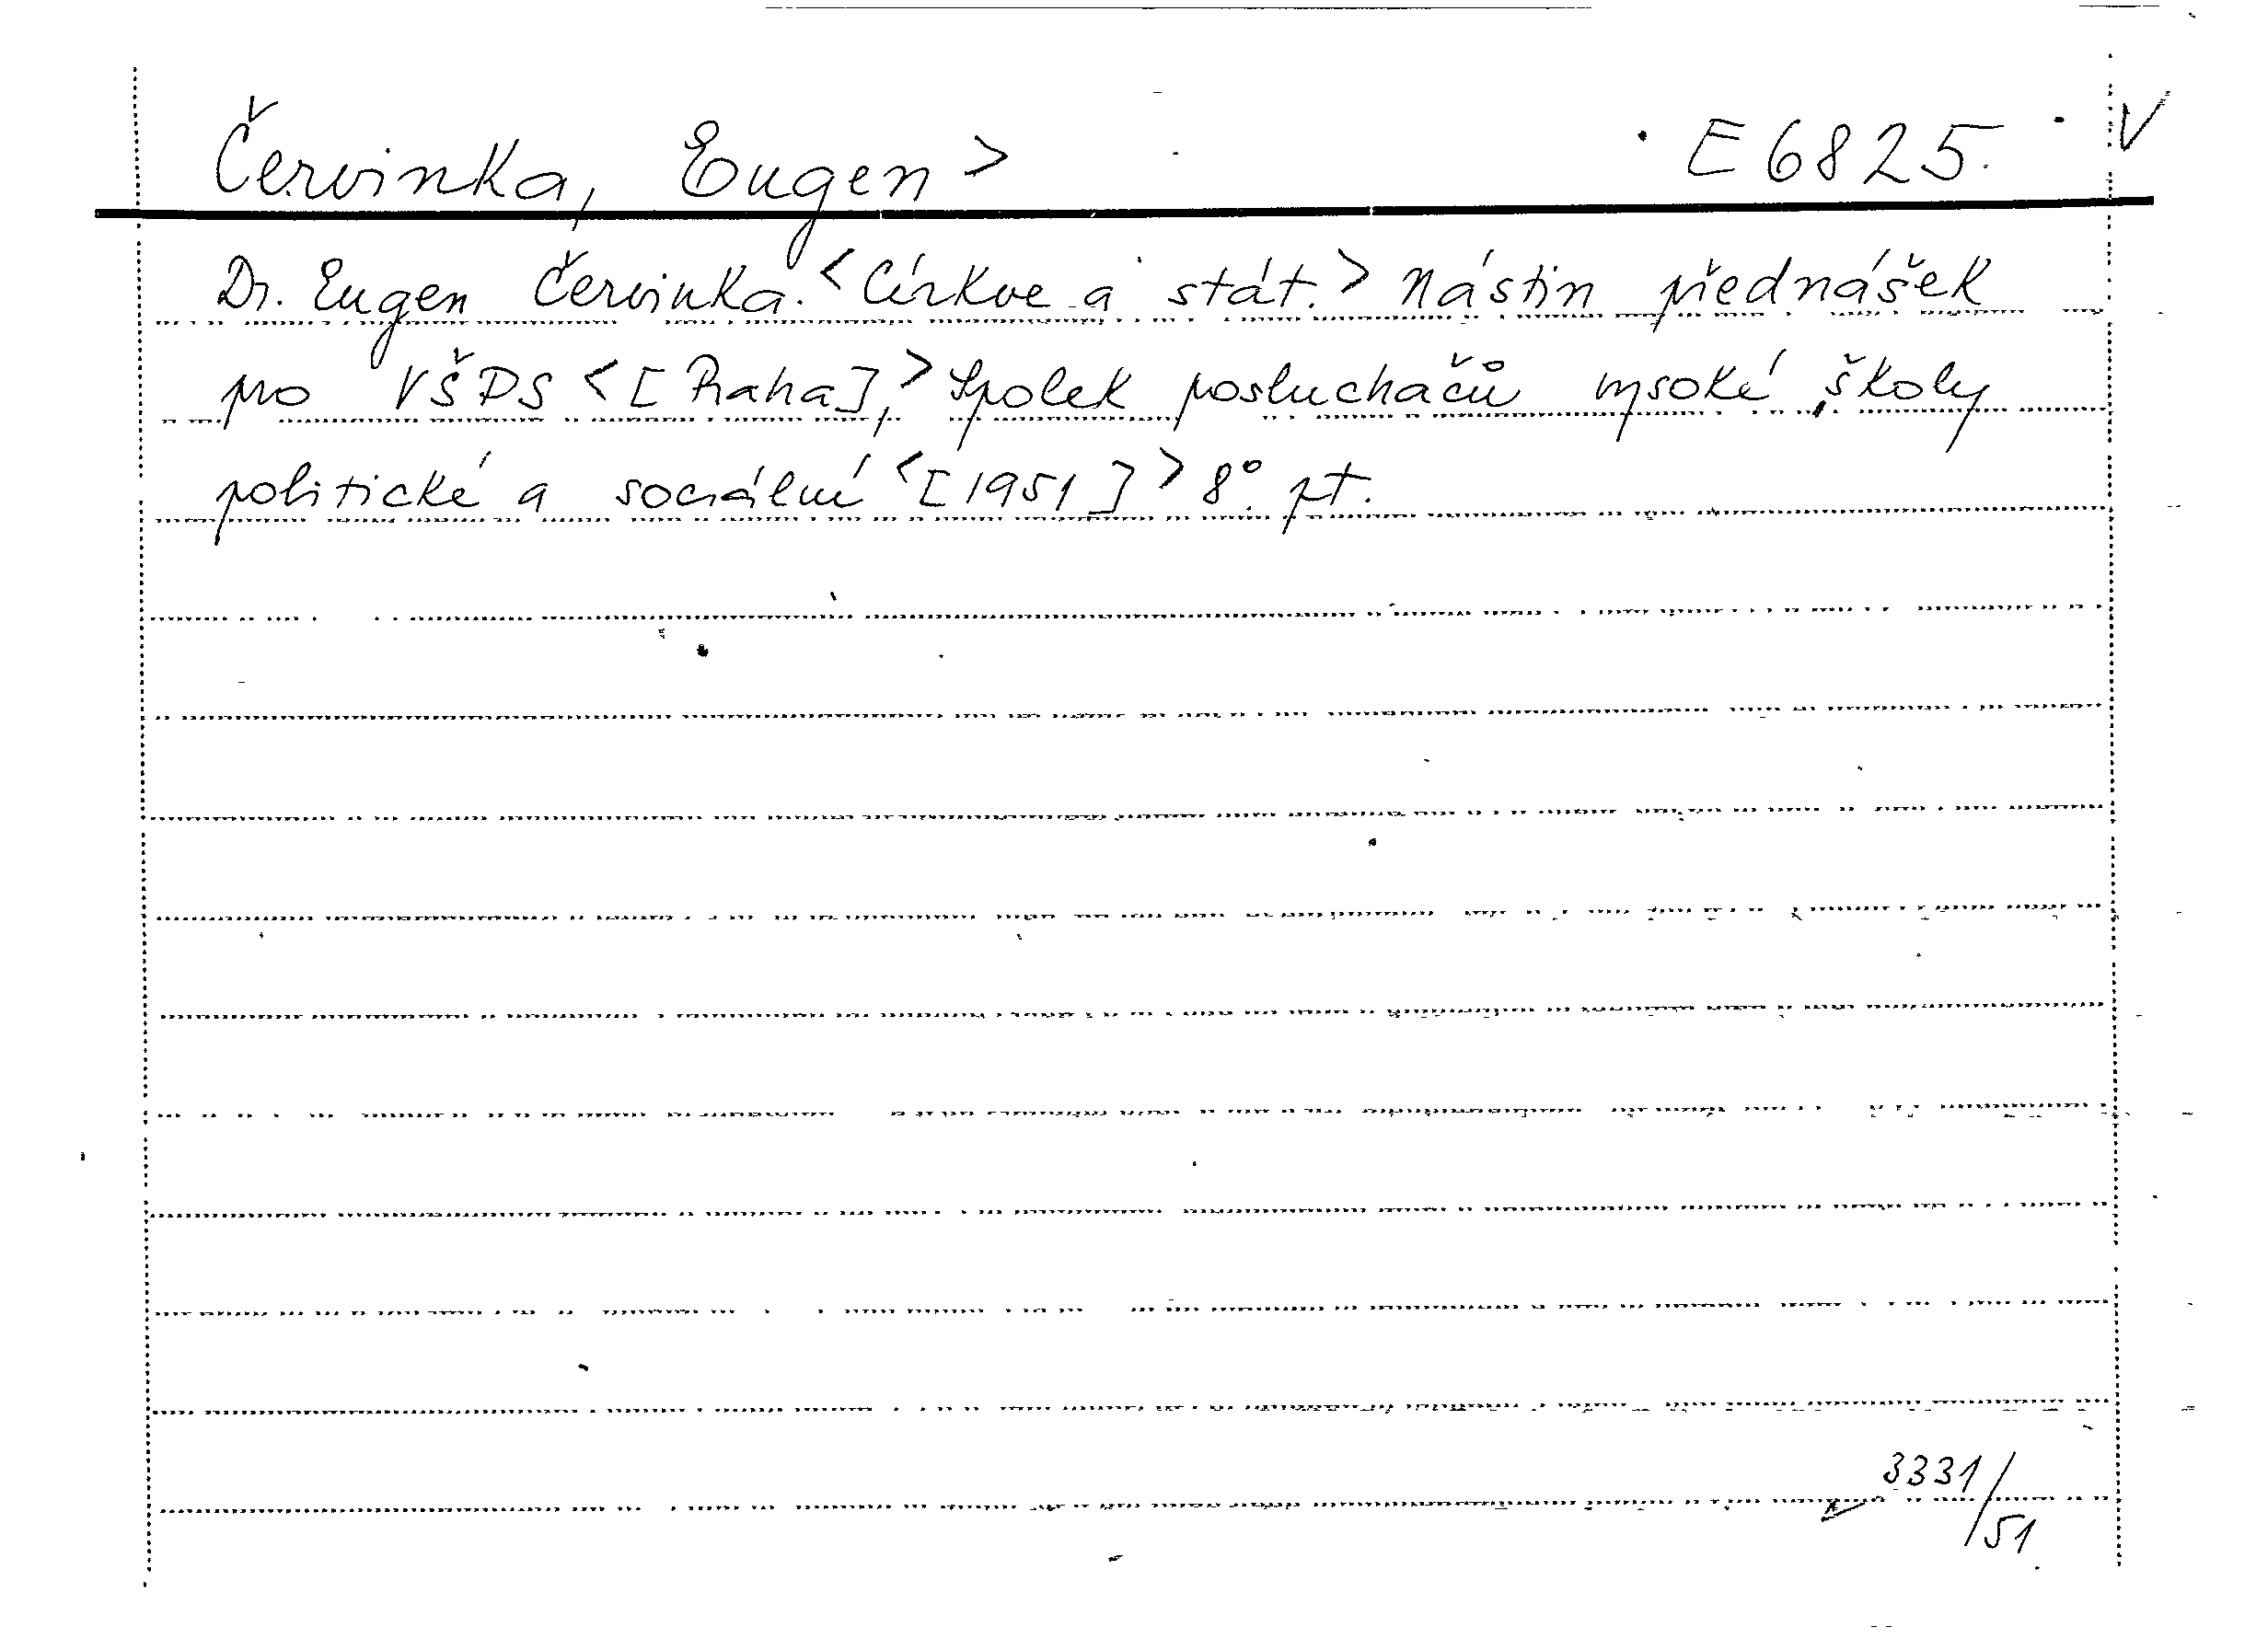 Červinka, Eugen > E 6825. V
Dr. Eugen Červinka. <Církve a stát.> Nástin přednášek
pro VŠPS <[Praha],> Spolek posluchačů vysoké školy
politické a sociální <[1951]> 8°. pt.
3331/
51